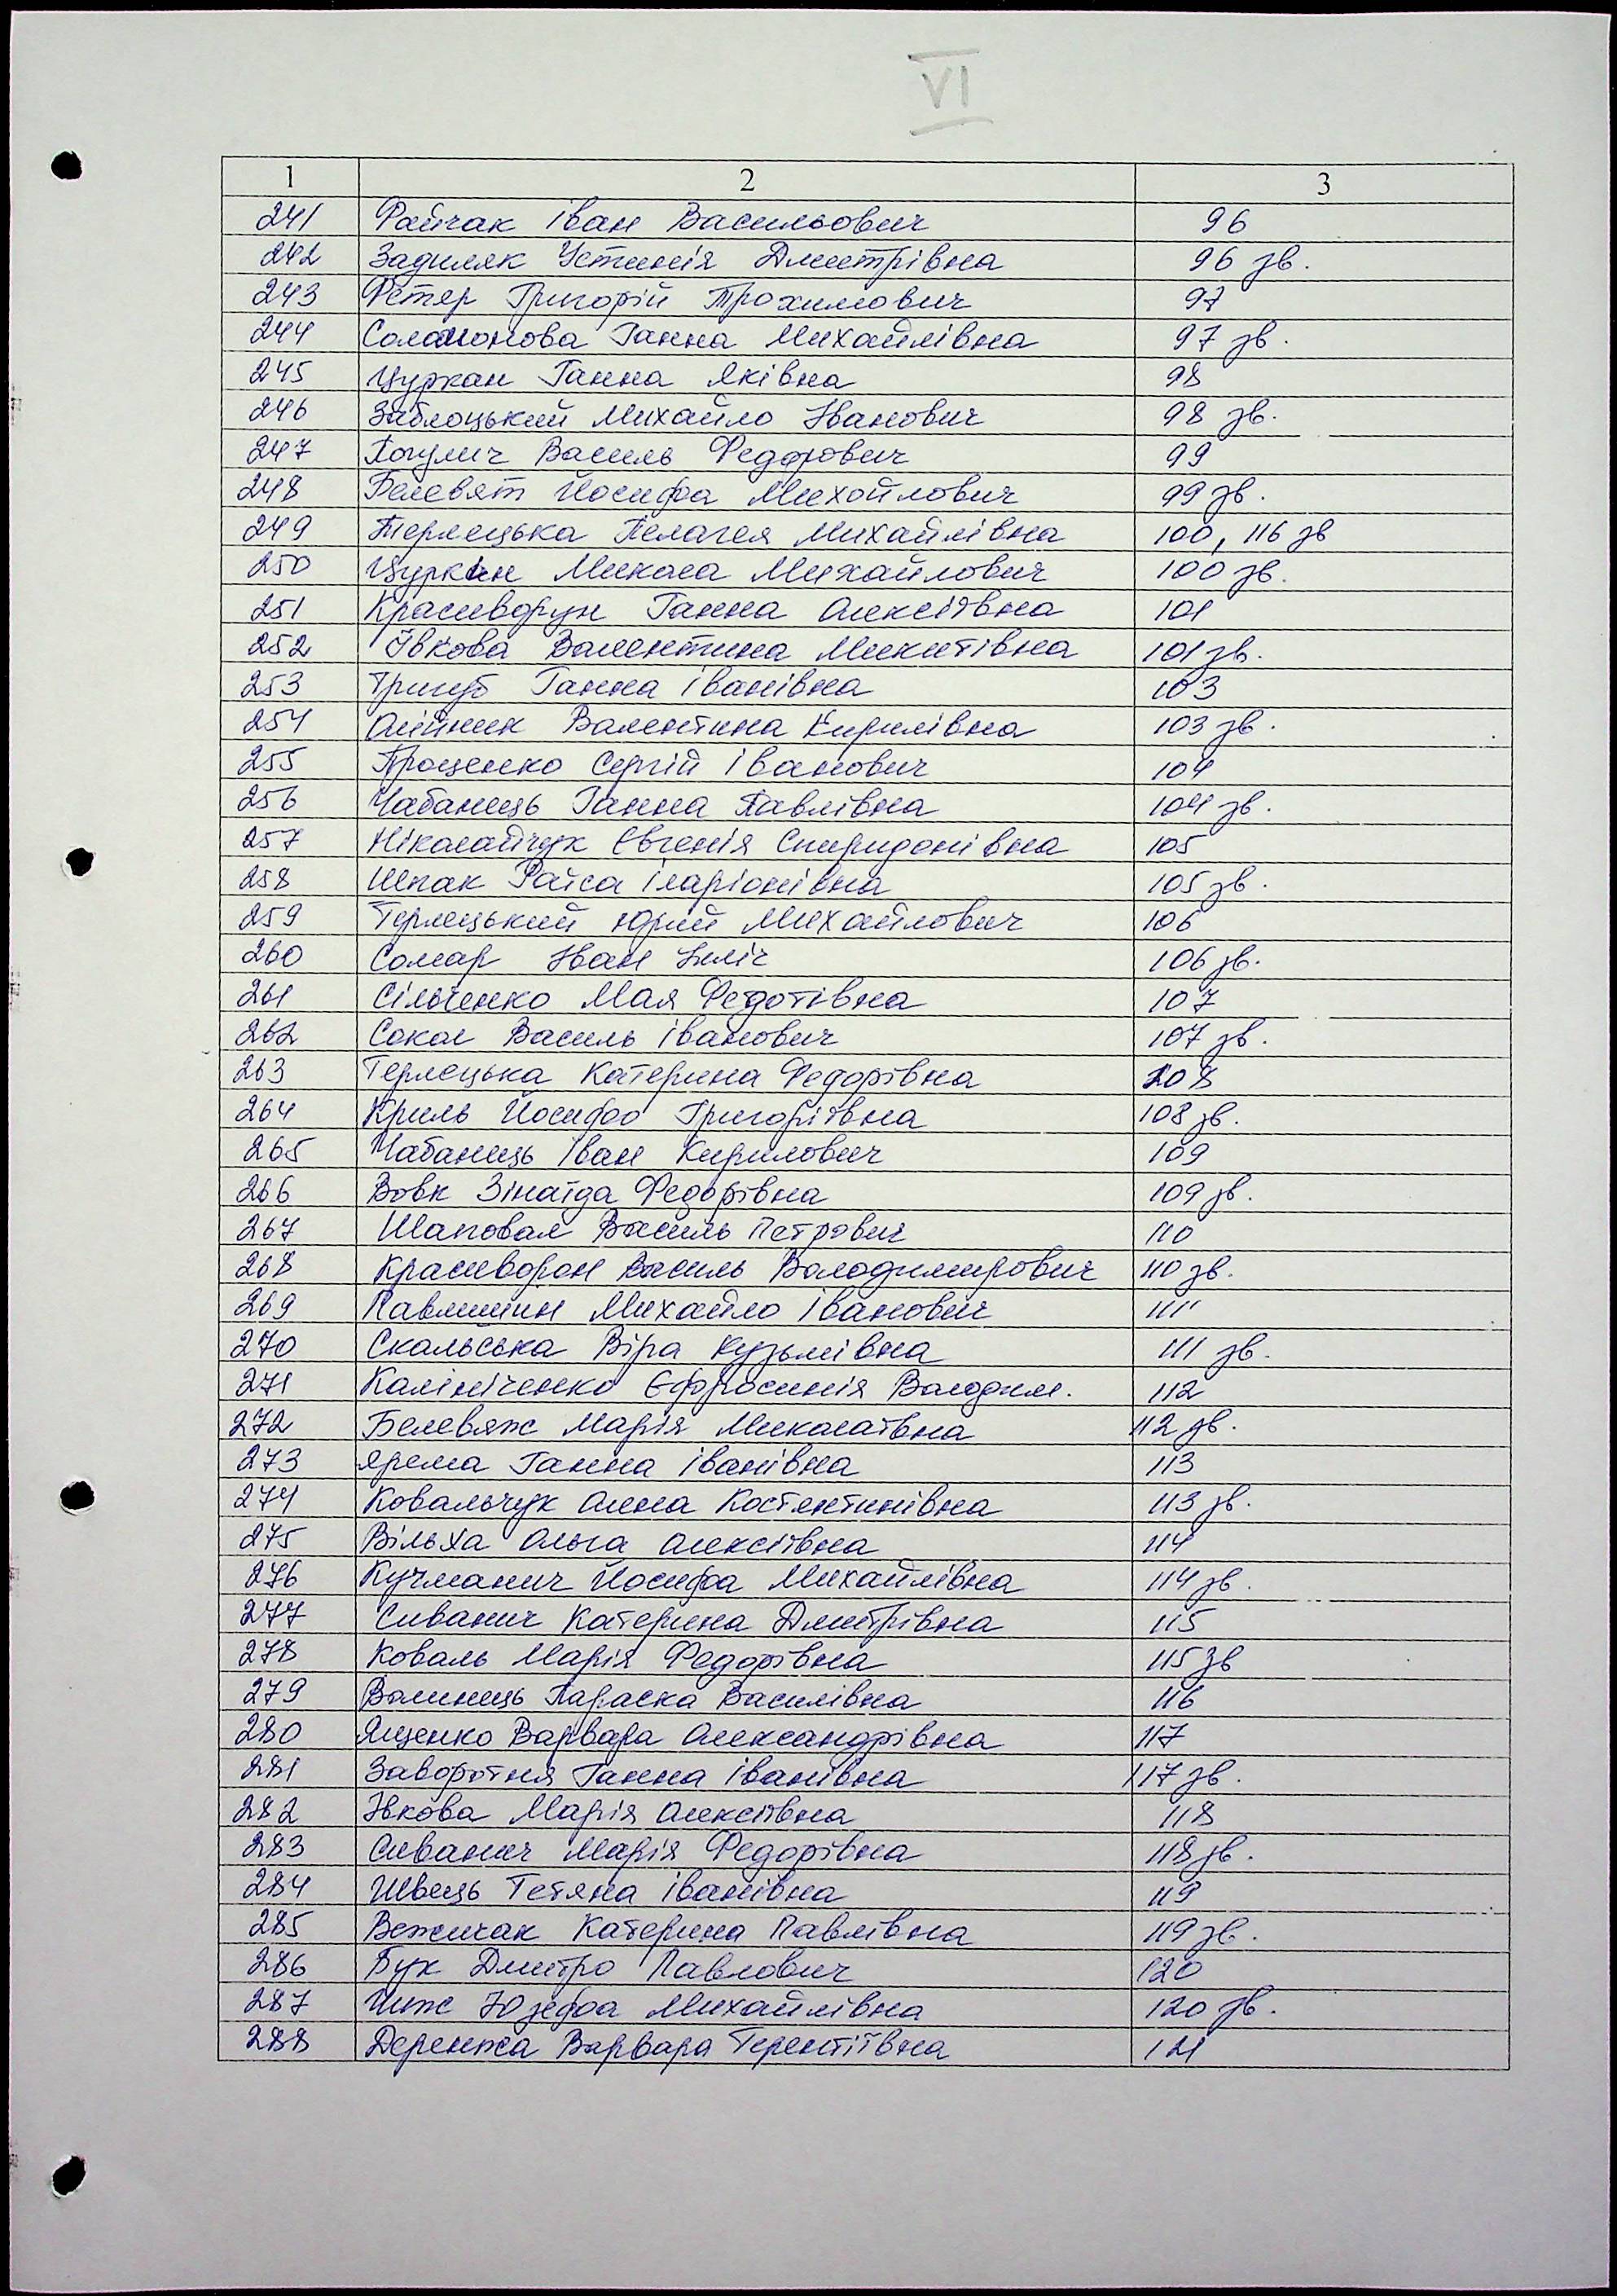 VI
1 2 3
241 Файчак Іван Васильович 96
242 Задиляк Устинія Дмитрівна 96 зв.
243 Фетер Григорій Трохимович 97
244 Соломонова Ганна Михайлівна 97 зв.
245 Цуркан Ганна Яківна 98
246 Заблоцький Михайло Іванович 98 зв.
247 Василь Федорович 99
248 Йосифа Михойлович 99 зв.
249 Терлецька Пелагея Михайлівна 100, 116 зв
250 Цуркан Микола Михайлович 100 зв.
251 Ганна Олексіївна 101
252 Івкова Валентина Микитівна 101 зв.
253 Тригуб Ганна Іванівна 103
254 Олійник Валентина Кирилівна 103 зв.
255 Проценко Сергій Іванович 104
256 Чабанець Ганна Павлівна 104 зв.
257 Ніколайчук Євгенія Спиридонівна 105
258 Шпак Раїса Іларіонівна 105 зв.
259 Терлецький Юрій Михайлович 106
260 Іван Ілліч 106 зв.
261 Сільченко Мая Федотівна 107
262 Сокол Василь Іванович 107 зв.
263 Терлецька Катерина Федорівна 108
264 Криль Йосифа Григоріївна 108 зв.
265 Чабанець Іван Кирилович 109
266 Вовк Зінаїда Федорівна 109 зв.
267 Шаповал Василь Петрович 110
268 Красиворон Василь Володимирович 110 зв.
269 Павлишин Михайло Іванович 111
270 Скальська Віра Кузьмівна 111 зв.
271 Калініченко Єфросинія Володим. 112
272 Белевяж Марія Миколаївна 112 зв.
273 Ярема Ганна Іванівна 113
274 Ковальчук Анна Костянтинівна 113 зв.
275 Вільха Ольга Олексіївна 114
276 Кучманич Йосифа Михайлівна 114 зв.
277 Сиванич Катерина Дмитрівна 115
278 Коваль Марія Федорівна 115 зв
279 Волинець Параска Василівна 116
280 Ященко Варвара Олександрівна 117
281 Заворотня Ганна Іванівна 117 зв.
282 Івкова Марія Олексіївна 118
283 Сиванич Марія Федорівна 118 зв.
284 Швець Тетяна Іванівна 119
285 Вежичак Катерина Павлівна 119 зв.
286 Бук Дмитро Павлович 120
287 Чиж Юзефа Михайлівна 120 зв.
288 Деренжа Варвара Терентіївна 121